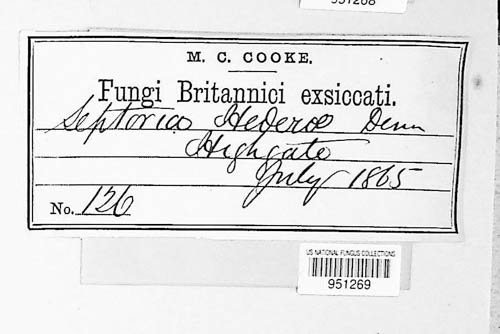 951268
M. C. COOKE.
Fungi Britannici exsiccati.
Septoria Hederæ Desm
Highgate
July 1865
No. 126
US NATIONAL FUNGUS COLLECTIONS
951269